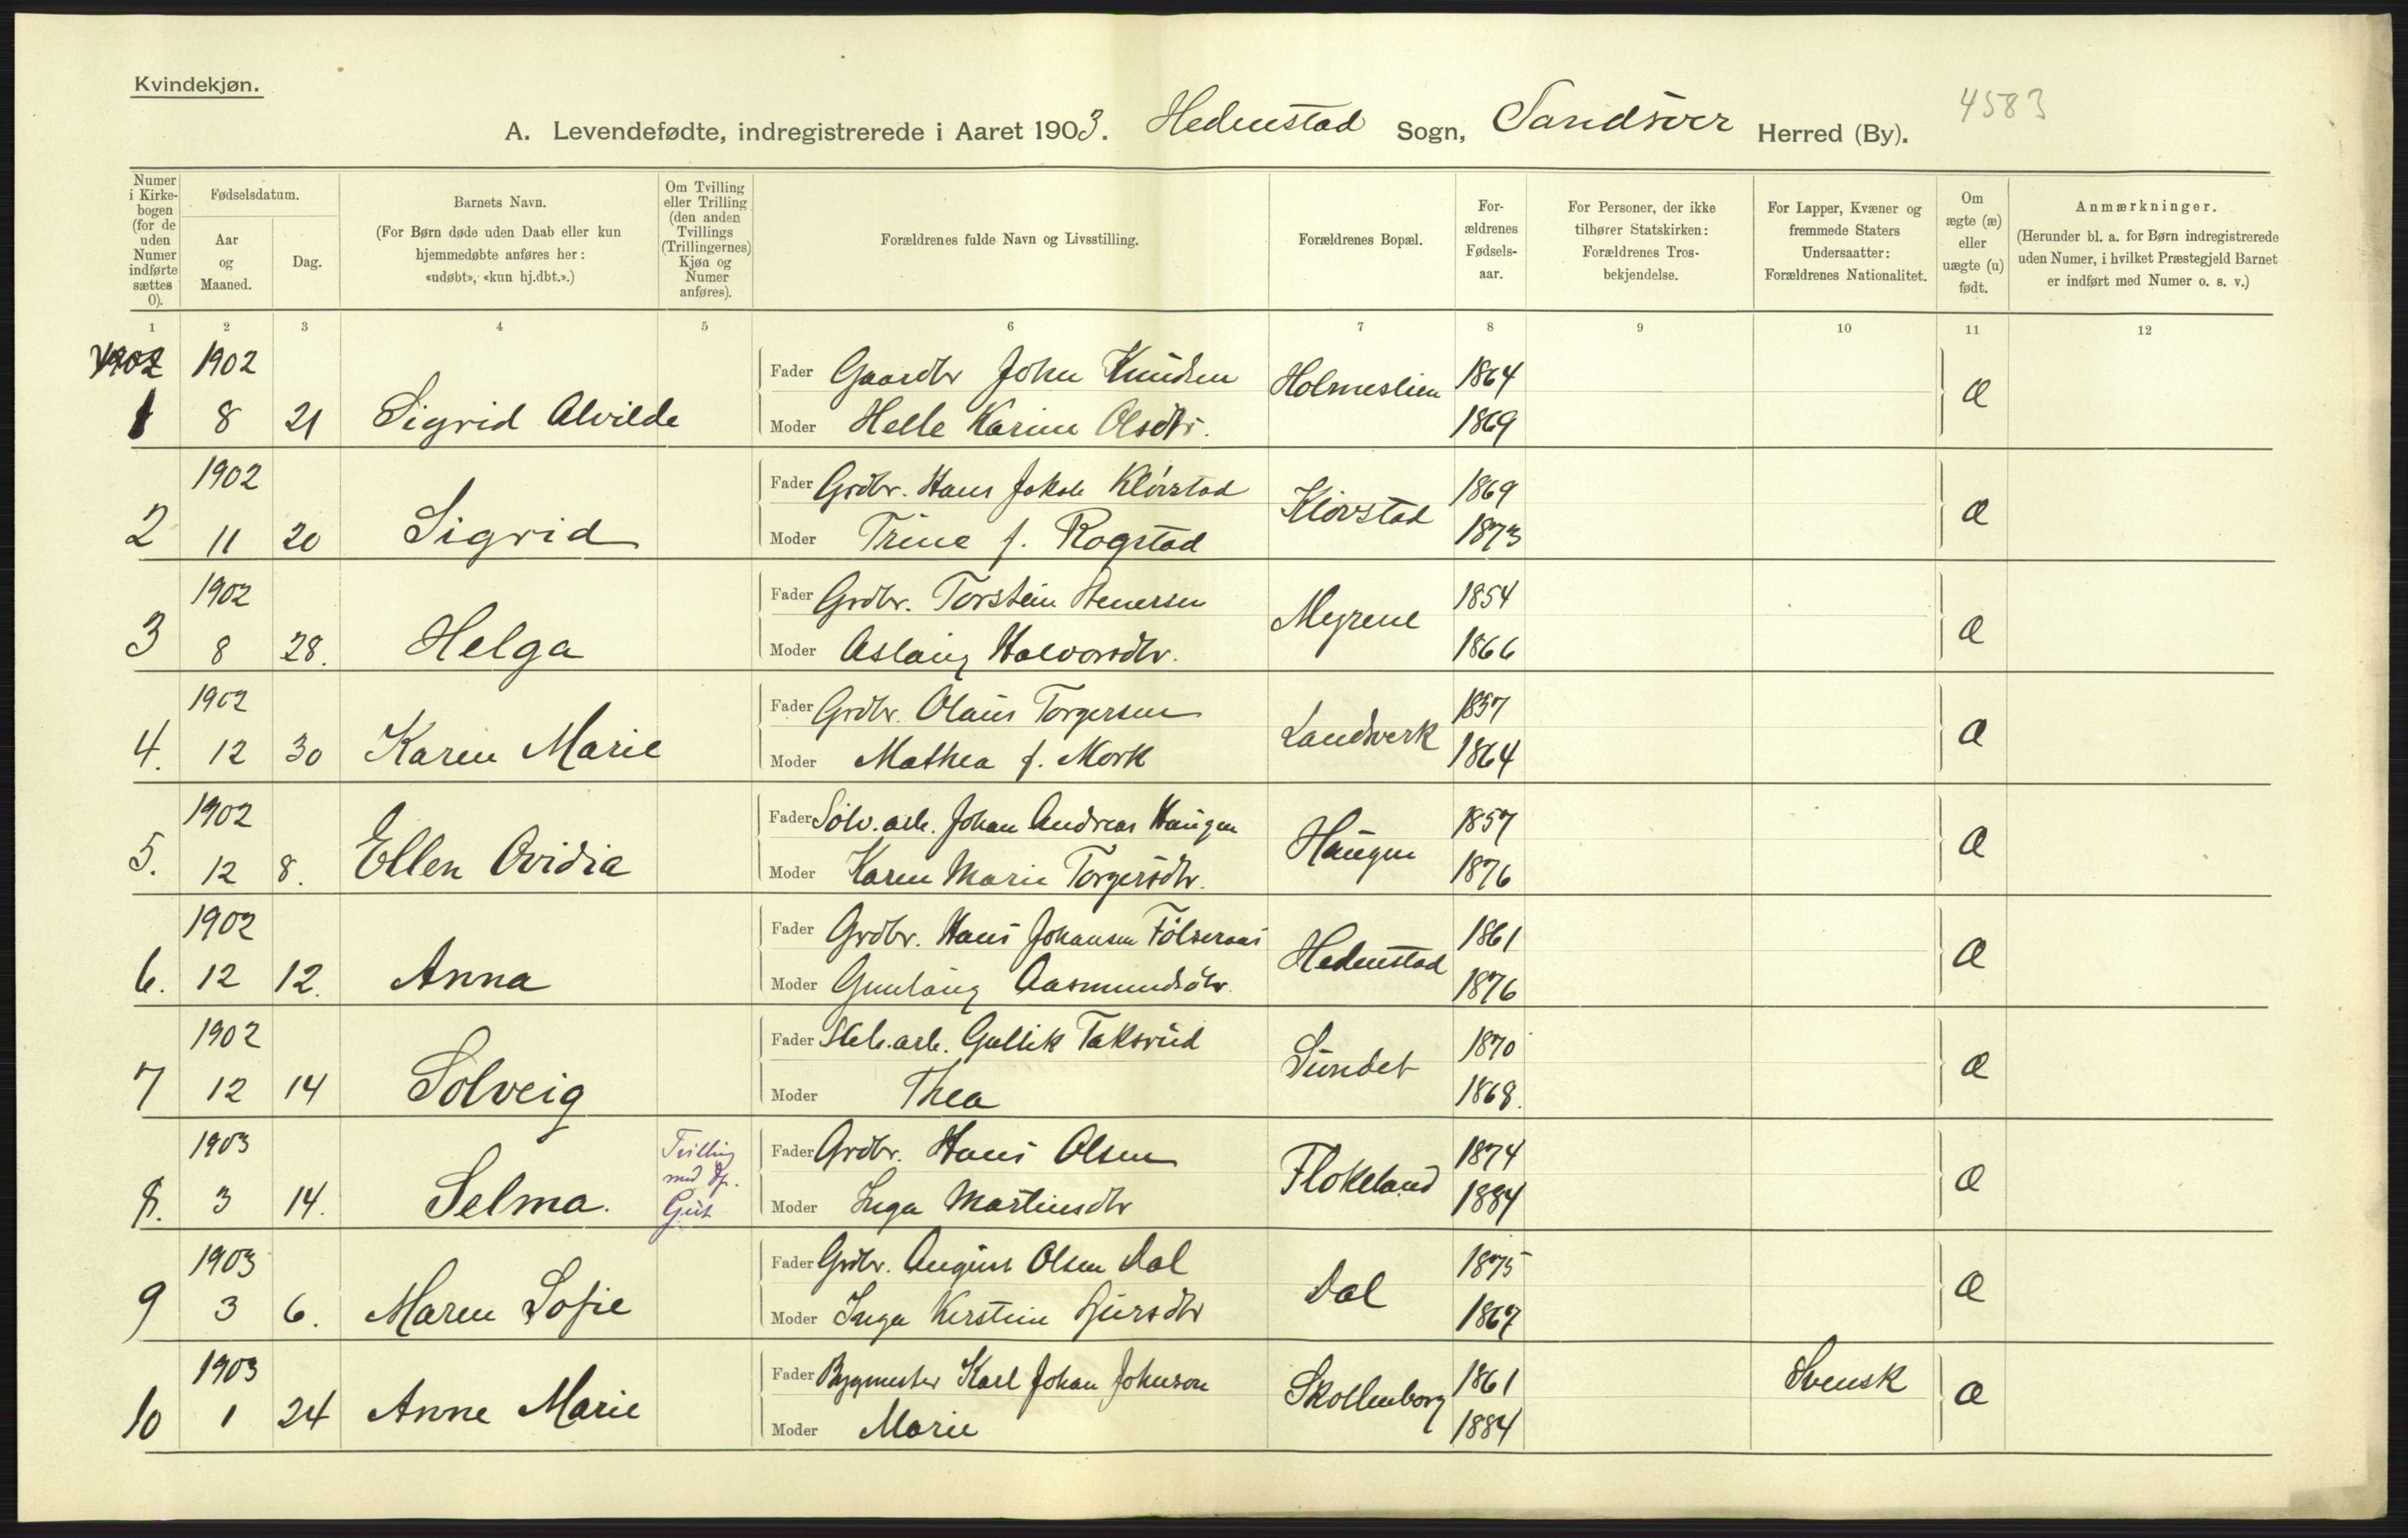 Kvindekjøn.
4583
A. Levendefødte, indregistrerede i Aaret 1903. Hedenstad Sogn, Sandsvær Herred (By).
Numer i Kirkebogen (for de uden Numer indførte sættes 0).
Fødselsdatum.
Aar og Maaned.
Dag.
Barnets Navn.
(For Børn døde uden Daab eller kun hjemmedøbte anføres her: «udøbt», «kun hj.dbt.».)
Om Tvilling eller Trilling (den anden Tvillings (Trillingernes) Kjøn og Numer anføres).
Forældrenes fulde Navn og Livsstilling.
Forældrenes Bopæl.
Forældrenes Fødselsaar.
For Personer, der ikke tilhører Statskirken: Forældrenes Trosbekjendelse.
For Lapper, Kvæner og fremmede Staters Undersaatter: Forældrenes Nationalitet.
Om ægte (æ) eller uægte (u) født.
Anmærkninger.
(Herunder bl. a. for Børn indregistrerede uden Numer, i hvilket Præstegjeld Barnet er indført med Numer o. s. v.)
1 2 3 4 5 6 7 8 9 10 11 12
1902 1902 Fader Gaardbr John Knudsen Holmeslien 1864 æ
1 8 21 Sigrid Alvilde Moder Helle Karine Olsdtr. 1869
1902 Fader Grdbr. Hans Jakob Kløvstad Kløvstad 1869 æ
2 11 20 Sigrid Moder Trine f. Rogstad 1873
1902 Fader Grdbr. Torstein Stenersen Myrene 1854 æ
3 8 28. Helga Moder Aslaug Halvorsdtr. 1866
1902 Fader Grdbr. Olaus Torgersen Landverk 1857 æ
4. 12 30 Karen Marie Moder Mathea f. Mork 1864
1902 Fader Sølv.arb. Johan Andreas Haugen Haugen 1857 æ
5. 12 8. Ellen Ovidia Moder Karen Marie Torgersdtr. 1876
1902 Fader Grdbr. Hans Johansen Følseraas Hedenstad 1861 æ
6. 12 12. Anna Moder Gunlaug Aasmundsdtr. 1876
1902 Fader arb. Gullik Taksrud Sundet 1870 æ
7 12 14 Solveig Moder Thea 1868.
1903 Tvilling Fader Grdbr. Hans Olsen Flokeland 1874 æ
8. 3 14. Selma. med Gut Moder Inga Martinsdtr 1884
1903 Fader Grdbr. August Olsen Dal Dal 1875 æ
9 3 6. Maren Sofie Moder Inga Kirstine 1867
1903 Fader Bygmester Karl Johan Johnson Skollenborg 1861 Svensk æ
10 1 24 Anne Marie Moder Marie 1884